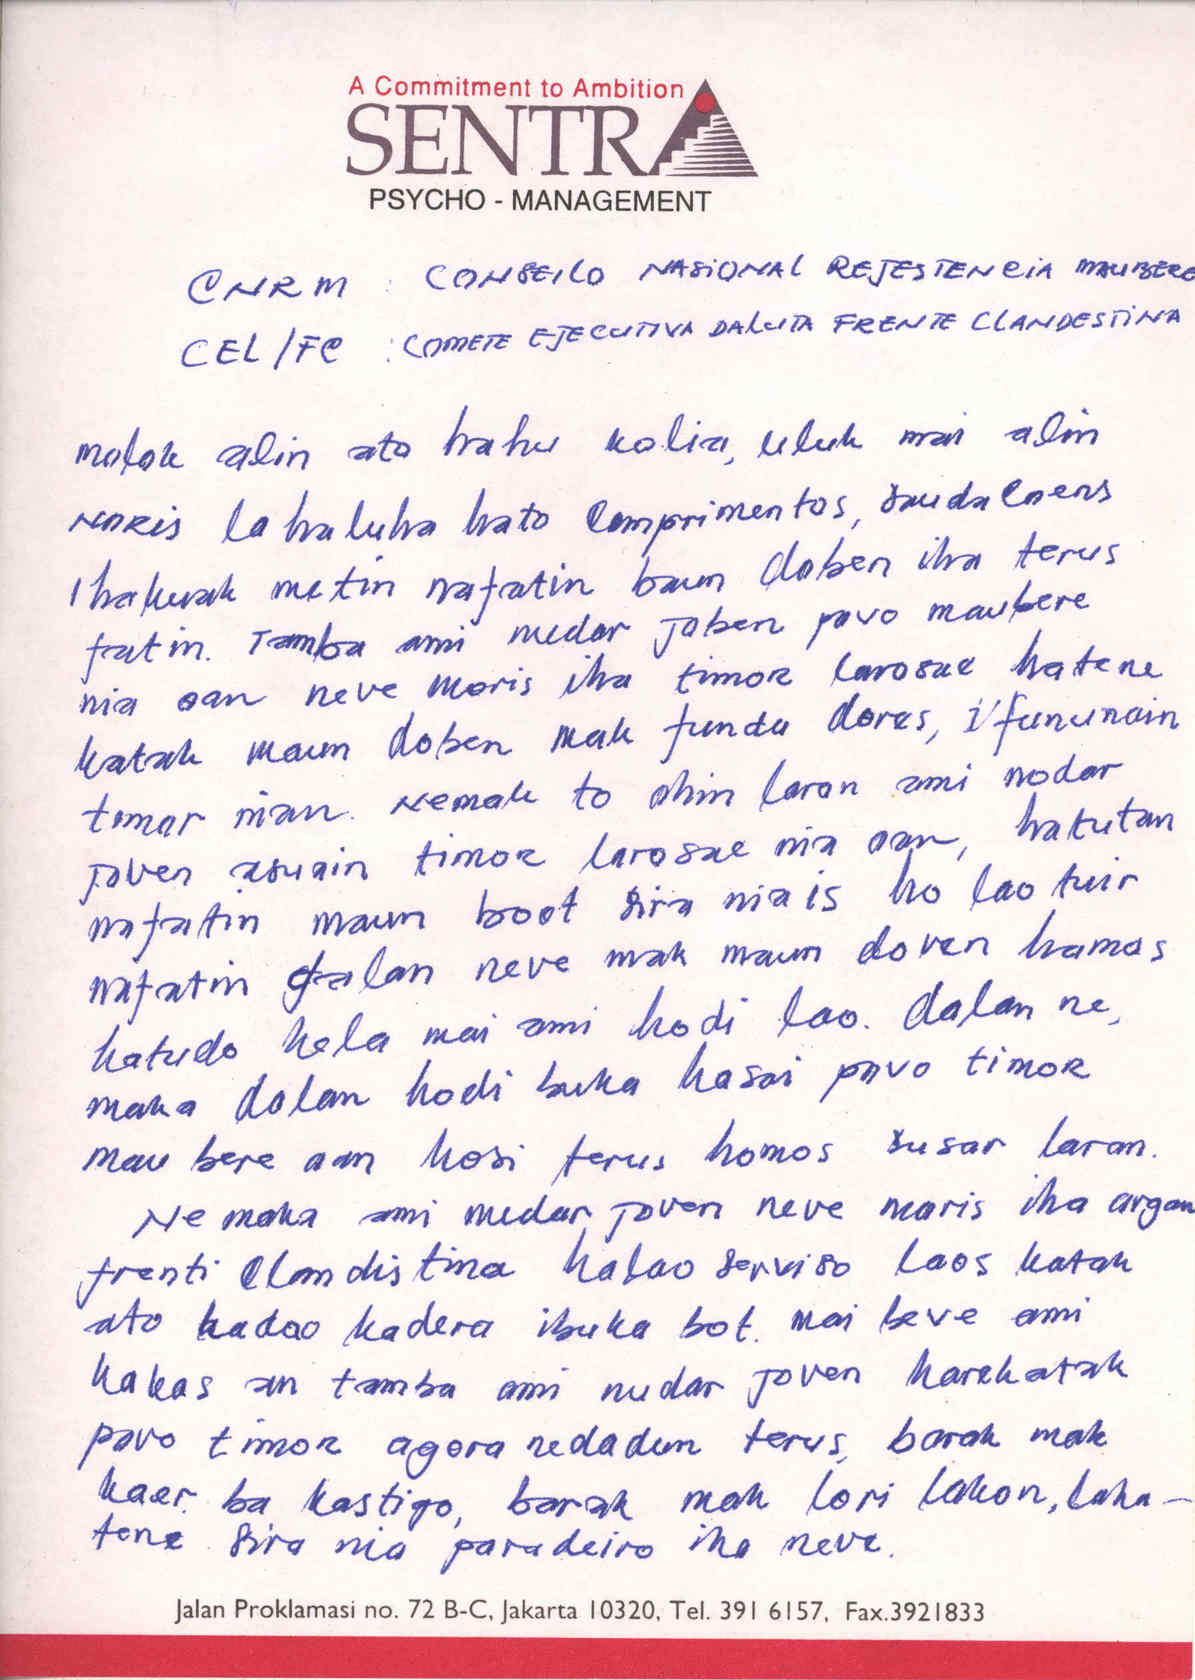 A Commitment to Ambition
SENTRA
PSYCHO - MANAGEMENT
CNRM : CONSEILO NASIONAL REJESTENCIA MAUBERE
CEL/FC : COMETE EJECUTIVA DALUTA FRENTE CLANDESTINA
molok alin ato hahu kolia, uluk mai alin
NORIS la haluha hato Comprimentos, saudaCoens
I hakuak metin nafatin baun doben iha terus
fatin. Tamba ami nudar joben povo maubere
nia oan neve moris iha timor larosae hatene
katak maun doben mak funda dores, i/fununain
timor nian. Nemak to ohin laron ami nodar
joven asuain timor larosae nia oan, hatutan
nafatin maun boot sira nia is ho lao tuir
nafatin dalan neve mak maun doven hamos
hatudo hela mai ami hodi lao. Dalan ne,
maka dalan hodi buka hasai povo timor
mau bere oan hosi terus homos susar laran.
Ne maka ami nudar joven neve moris iha organ
frenti Clandistina halao serviso laos katak
ato hadao kadera ibuka bot. mai beve ami
hakas an tamba ami nudar joven harekatak
povo timor agora nedadun terus, barak mak
kaer ba kastigo, barak mak lori lakon, laha-
tene sira nia paradeiro iha neve.
Jalan Proklamasi no. 72 B-C, Jakarta 10320, Tel. 391 6157, Fax.3921833